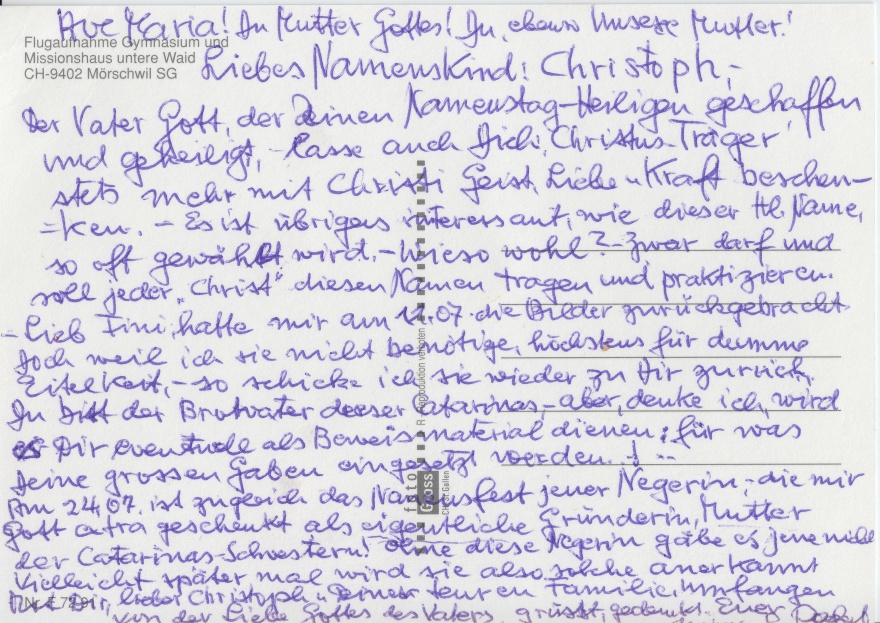 Ave Maria! Du Mutter Gottes! Du, ebenso Unsere Mutter!
Flugaufnahme Gymnasium und
Missionshaus untere Waid
CH-9402 Mörschwil SG
Liebes Namenskind: Christoph,-
Der Vater Gott, der Deinen Namenstag-Heiligen geschaffen
und geheiligt, - lasse auch Dich, Christus-Träger
stets mehr mit Christi Geist, Liebe u. Kraft beschen-
=ken. - Es ist übrigens interessant, wie dieser Hl. Name,
so oft gewählt wird. - Wieso wohl? - Zwar darf und
soll jeder "Christ" diesen Namen tragen und praktizieren.
- Lieb Fini, hatte mir am 12.07. die Bilder zurückgebracht
doch weil ich sie nicht benötige, höchstens für dumme
Eitelkeit, - so schicke ich sie wieder zu Dir zurück.
Du bist der Brotvater dieser Catarinas, - aber, denke ich, wird
es Dir eventuell als Beweismaterial dienen; für was
Deine grossen Gaben eingesetzt werden..! -
Am 24.07. ist zugleich das Namensfest jener Negerin, - die mir
Gott extra geschenkt als eigentliche Gründerin, Mutter
der Catarinas-Schwestern! Ohne diese Negerin gäbe es jene nicht
Vielleicht später mal wird sie also solche anerkannt
Mit Dir, lieber Christoph u. Deiner teuren Familie, umfangen
von der Liebe Gottes des Vaters, grüsst, gedenkt Euer
Reproduktion verboten
foto
Gross
St. Gallen